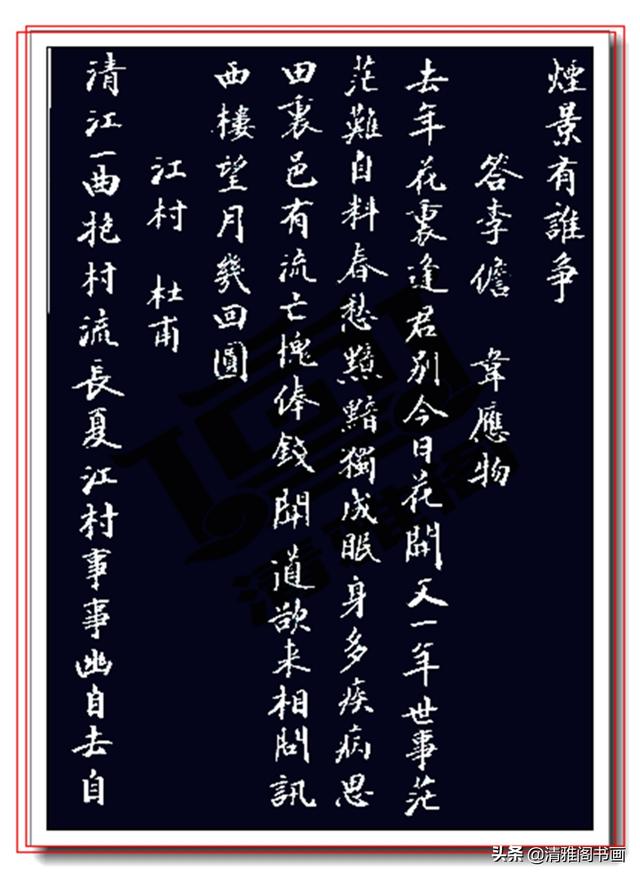 煙景有誰争
答李儋 韋應物
去年花裏逢君別今日花開又一年世事茫
茫難自料春愁黯黯獨成眠身多疾病思
田裏邑有流亡愧俸錢聞道欲来相問訊
西樓望月幾回圓
江村 杜甫
清江一曲抱村流長夏江村事事幽自去自
清雅阁
头条 @清雅阁书画